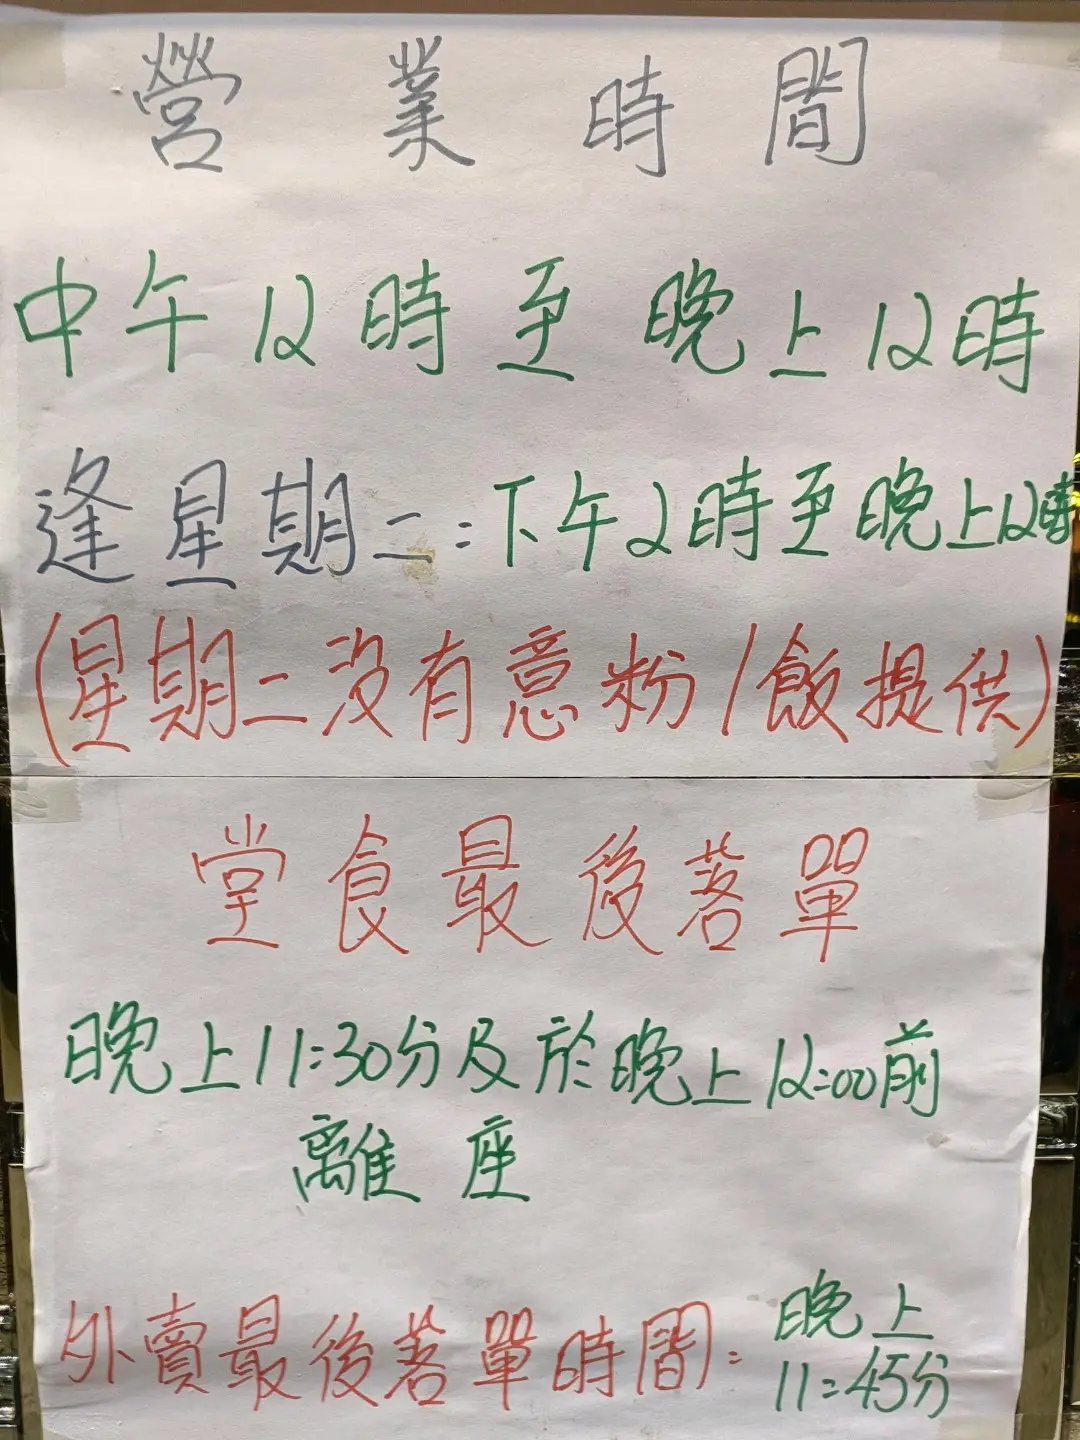 營業時間
中午12時至晚上12時
逢星期二:下午2時至晚上12時
(星期二沒有意粉/飯提供)
堂食最後落單
晚上11:30分及於晚上12:00前
離座
外賣最後落單時間:晚上
11:45分